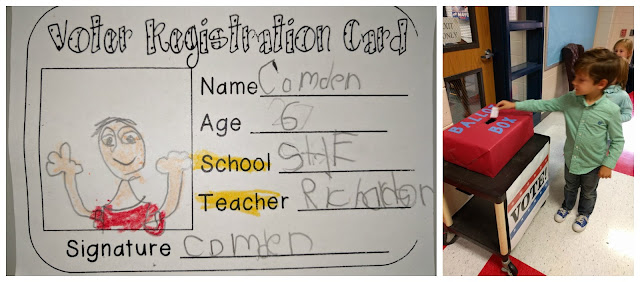 Voter Registration Card
Name Camden
Age 6
School SHE
Teacher Richardson
Signature Camden
EXIT
ONLY
BALLOT
BOX
VOTE!